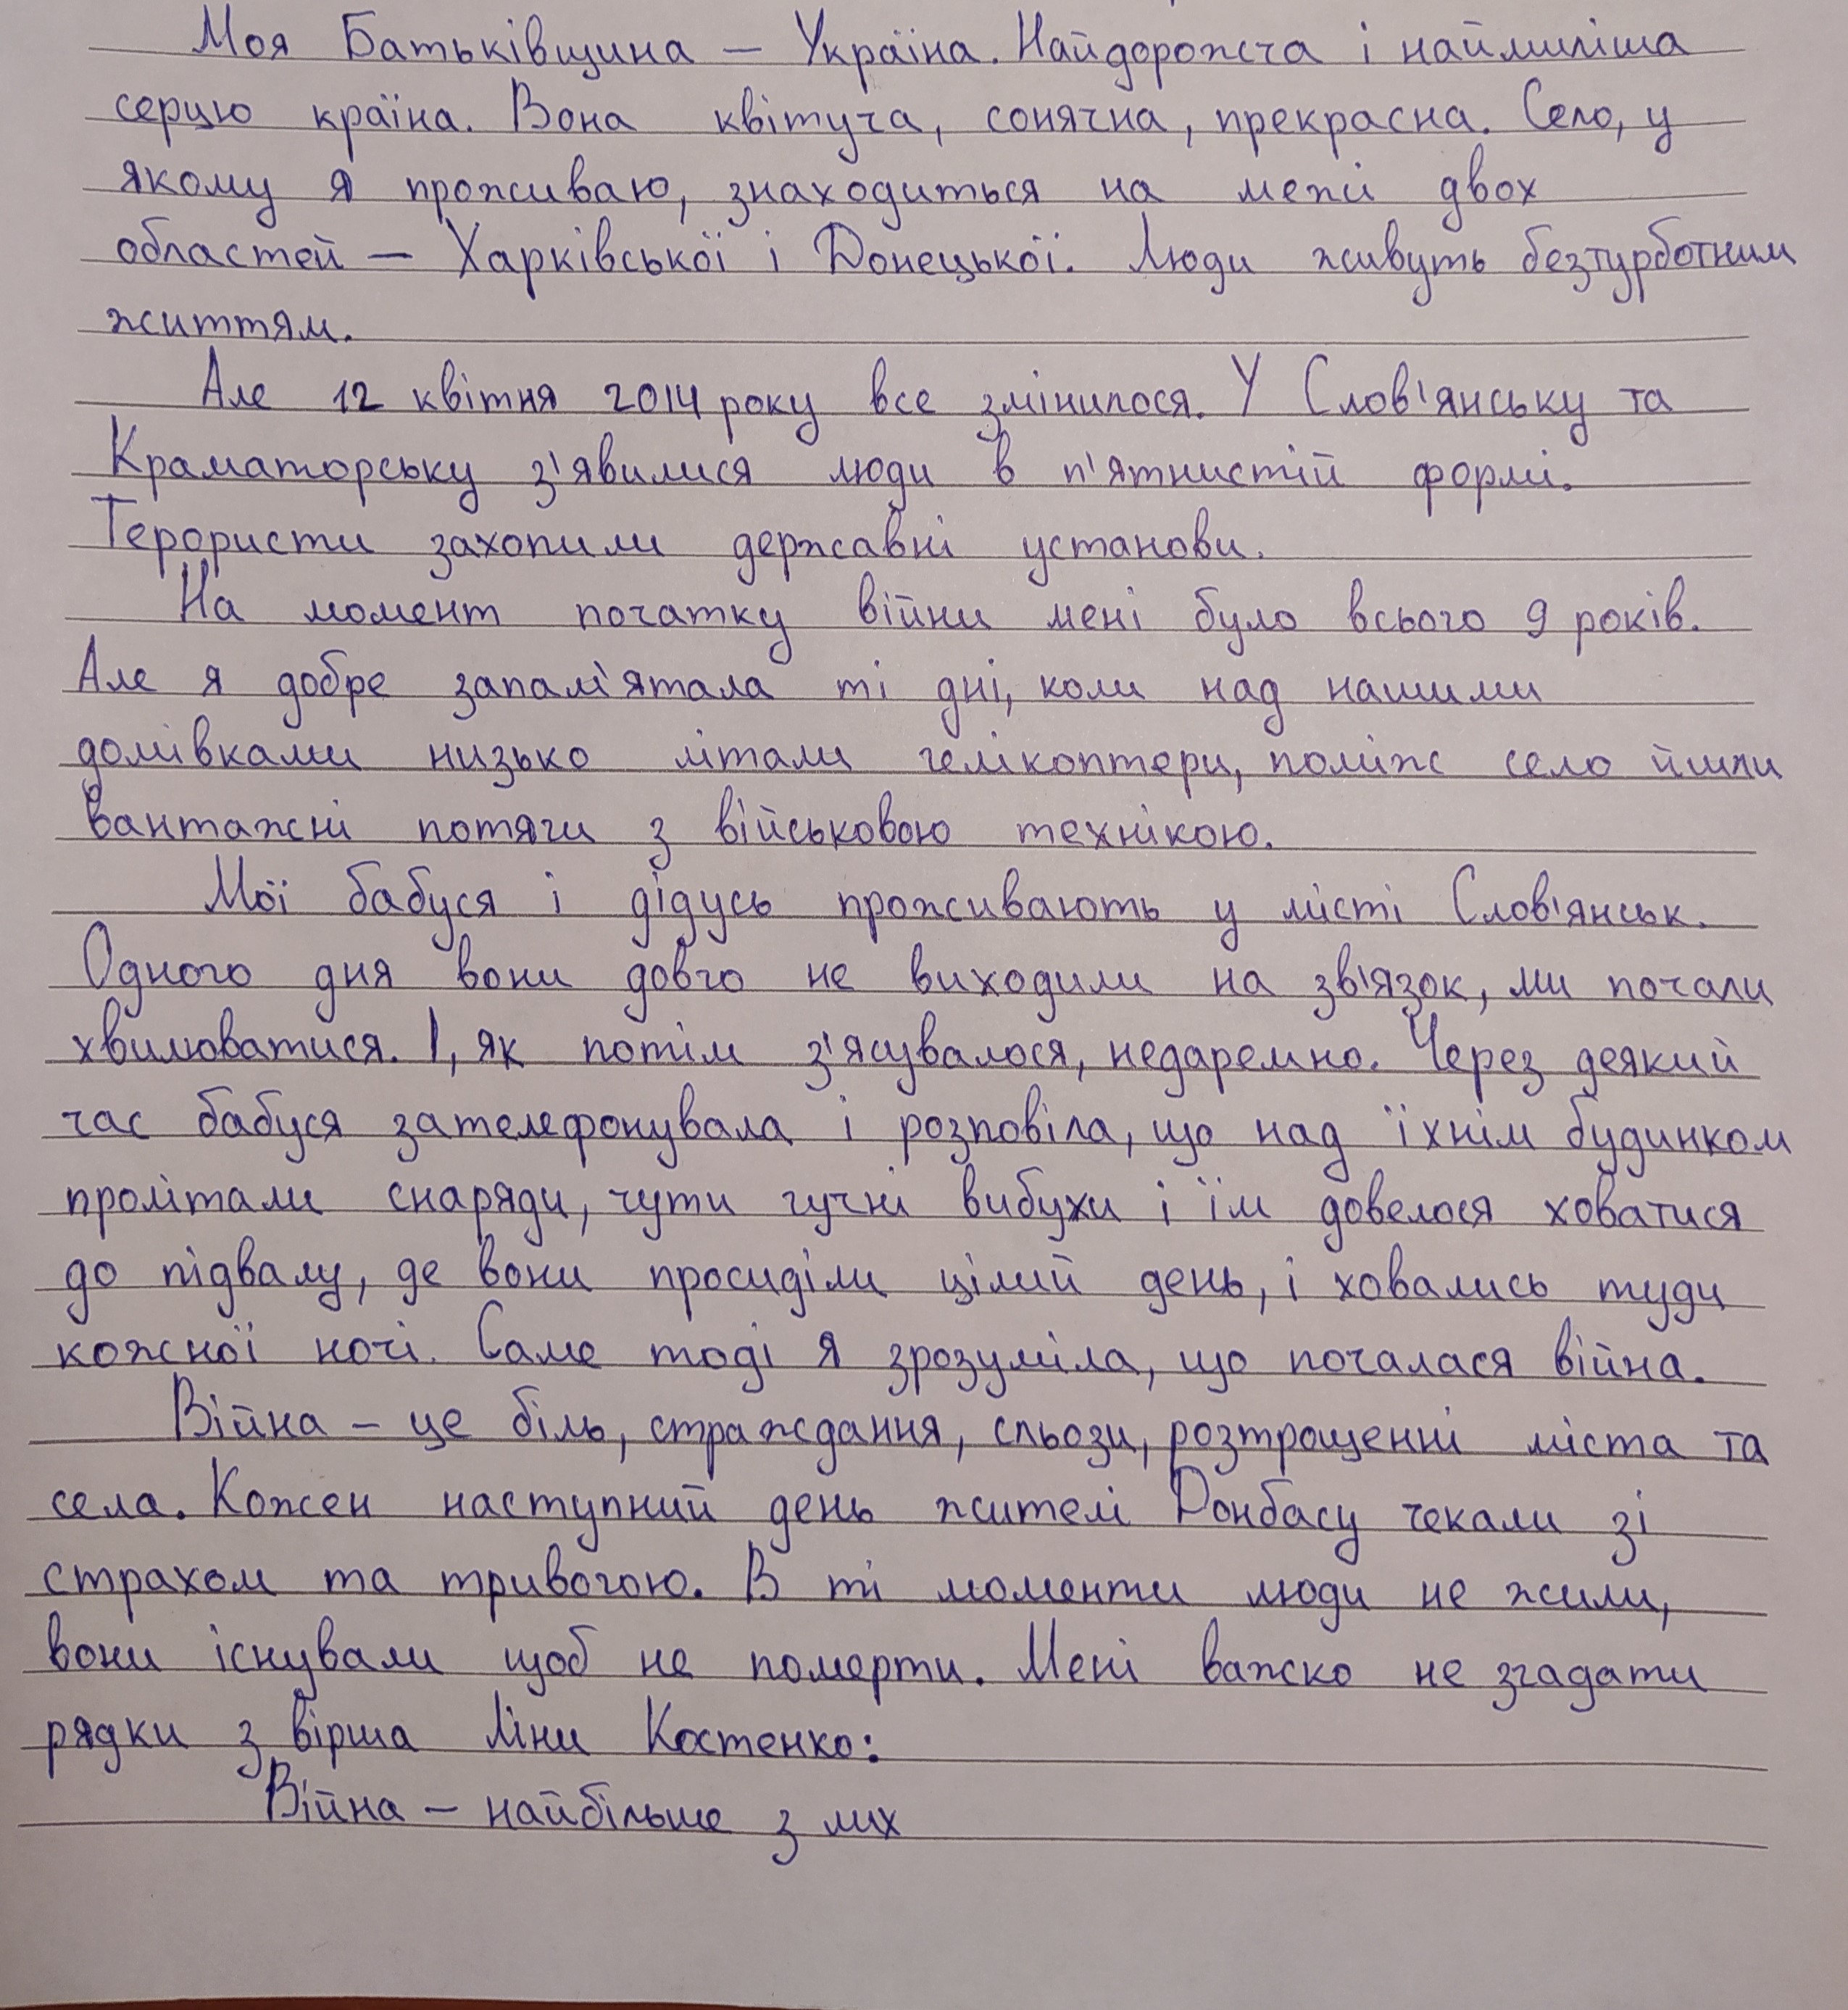 Моя Батьківщина – Україна. Найдорожча і наймиліша
серцю країна. Вона квітуча, сонячна, прекрасна. Село, у
якому я проживаю, знаходиться на межі двох
областей – Харківської і Донецької. Люди живуть безтурботним
життям.
Але 12 квітня 2014 року все змінилося. У Слов'янську та
Краматорську з'явилися люди в п'ятнистій формі.
Терористи захопили державні установи.
На момент початку війни мені було всього 9 років.
Але я добре запам'ятала ті дні, коли над нашими
домівками низько літали гелікоптери, поміж село йшли
вантажні потяги з військовою технікою.
Мої бабуся і дідусь проживають у місті Слов'янськ.
Одного дня вони довго не виходили на зв'язок, ми почали
хвилюватися. І, як потім з'ясувалося, недаремно. Через деякий
час бабуся зателефонувала і розповіла, що над їхнім будинком
пролітали снаряди, чути гучні вибухи і їм довелося ховатися
до підвалу, де вони просиділи цілий день, і ховались туди
кожної ночі. Саме тоді я зрозуміла, що почалася війна.
Війна – це біль, страждання, сльози, розтрощенні міста та
села. Кожен наступний день жителі Донбасу чекали зі
страхом та тривогою. В ті моменти люди не жили,
вони існували щоб не померти. Мені важко не згадати
рядки з вірша Ліни Костенко:
Війна – найбільше з лих